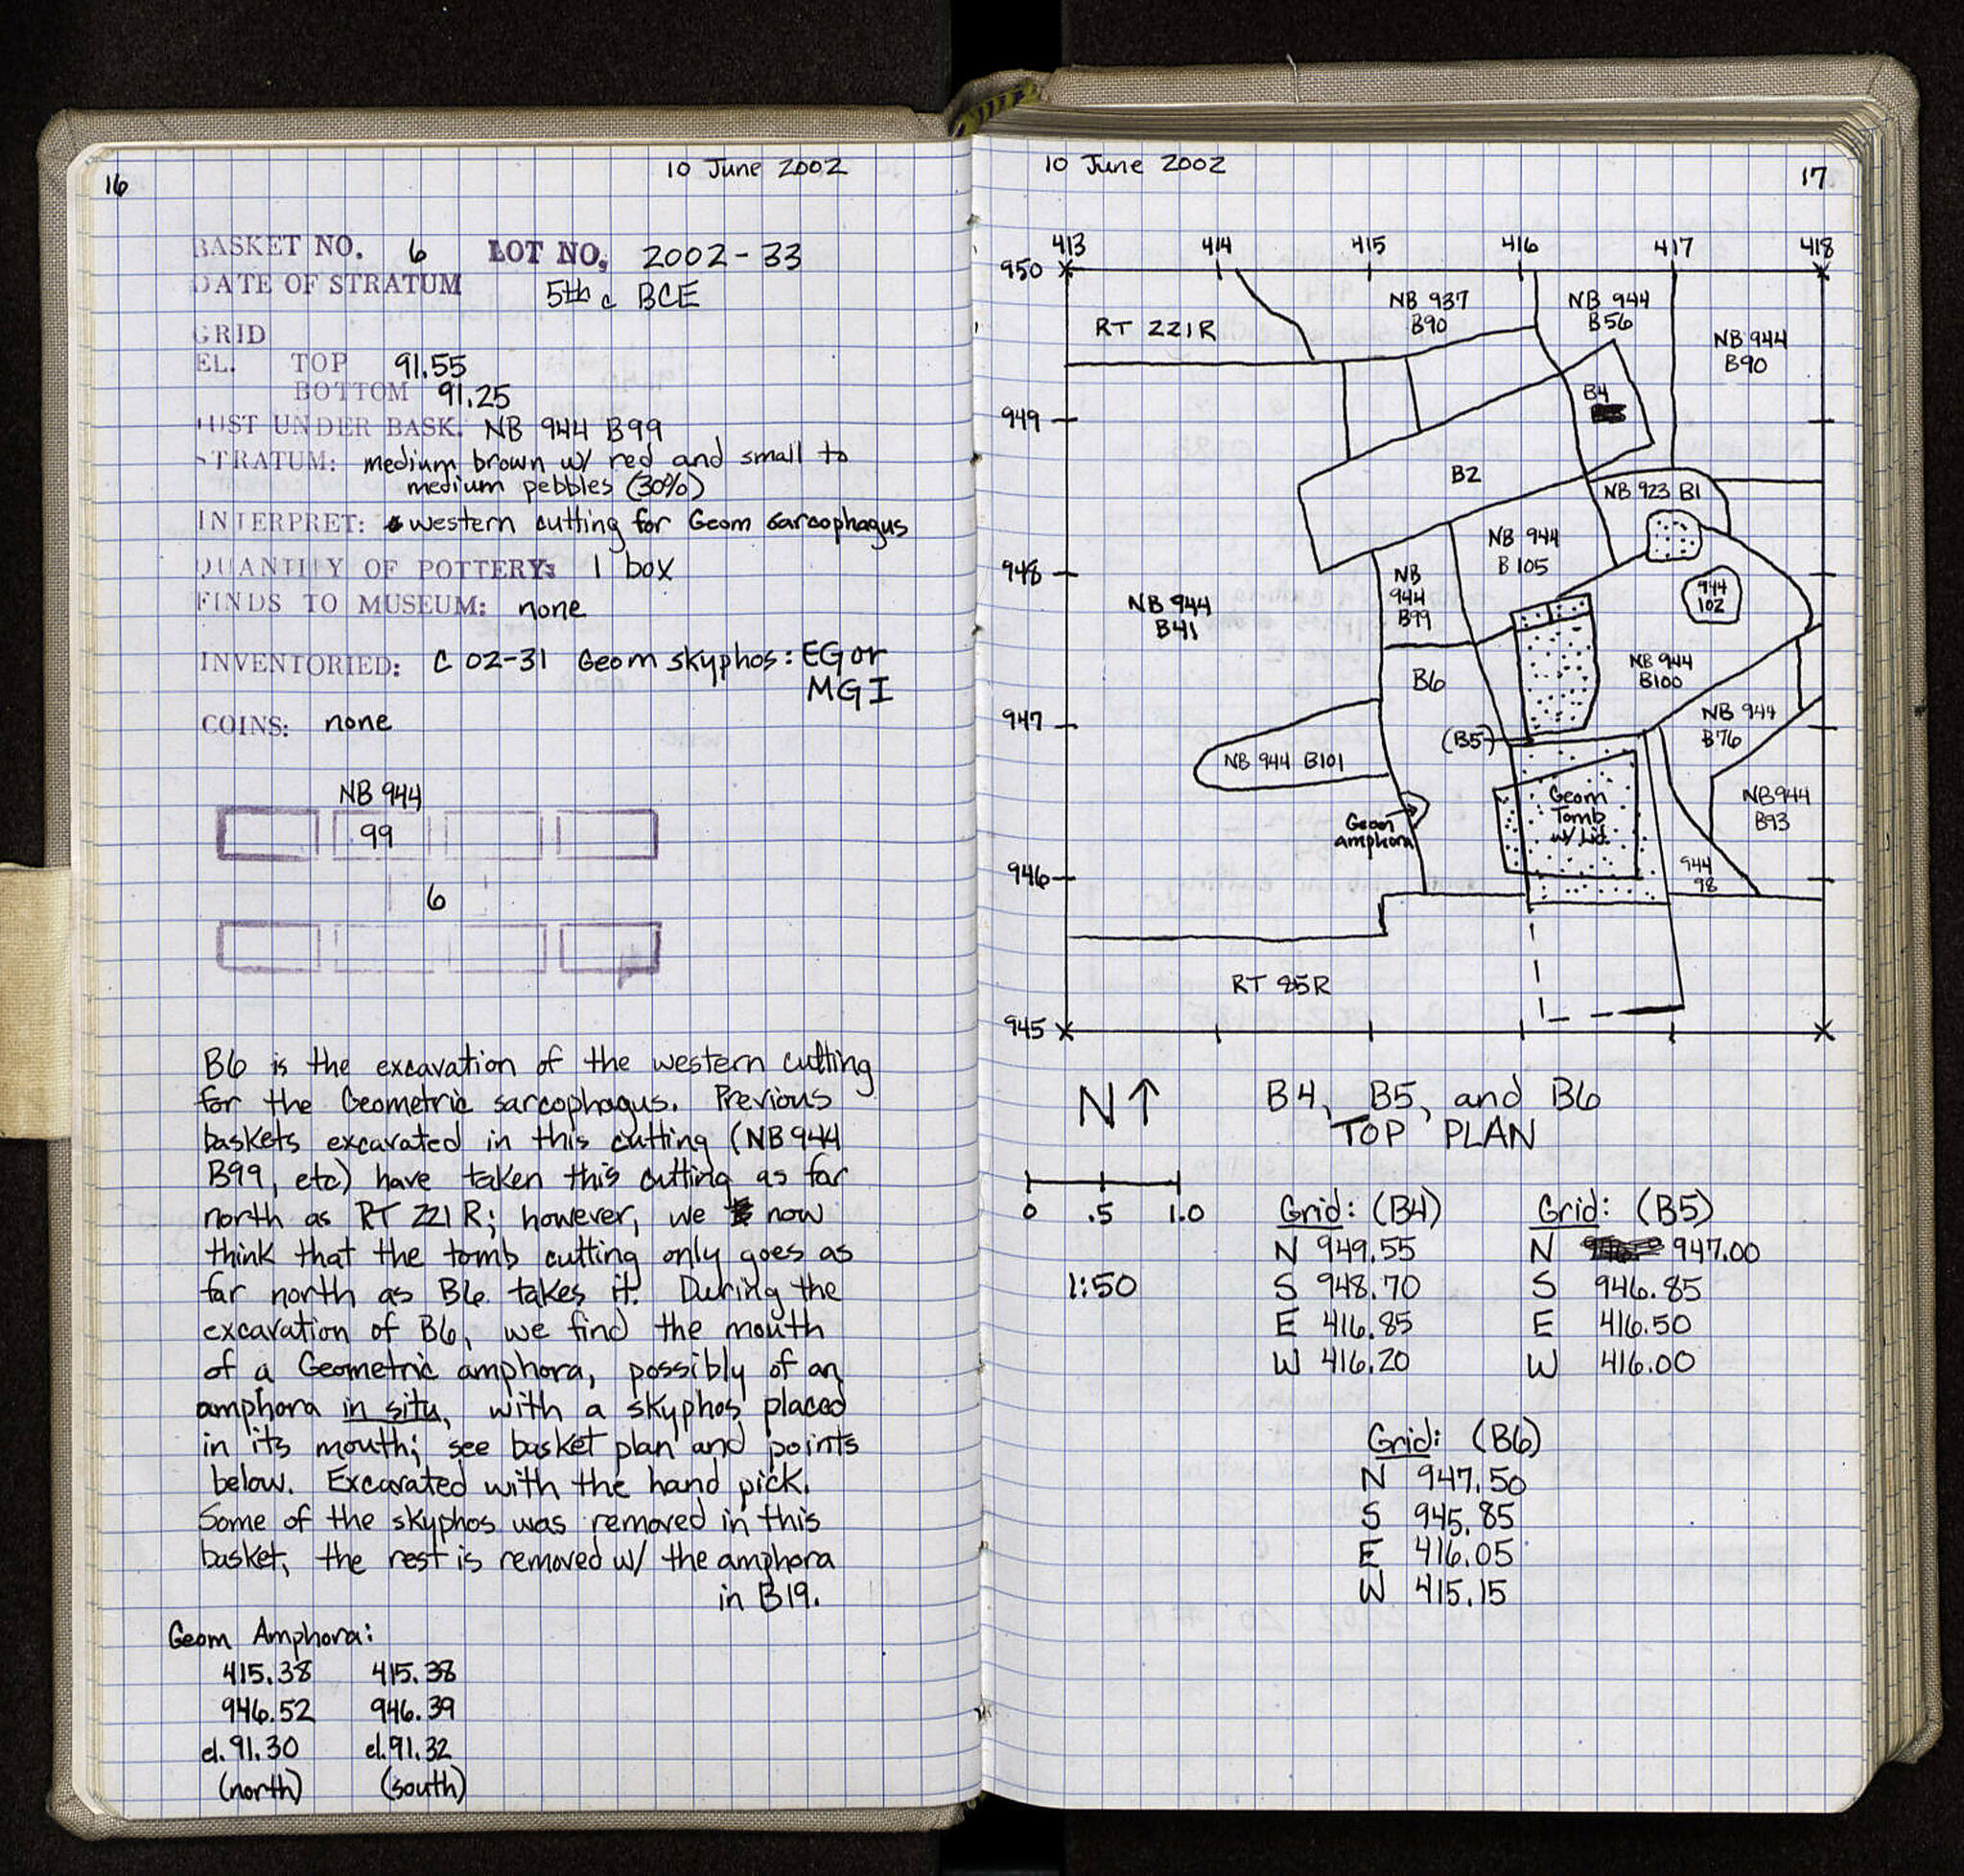 16
10 June 2002
BASKET NO. 6 LOT NO. 2002-33
DATE OF STRATUM 5th c BCE
GRID
EL. TOP 91.55
BOTTOM 91.25
JUST UNDER BASK. NB 944 B99
STRATUM: medium brown w/ red and small to
medium pebbles (30%)
INTERPRET: western cutting for Geom sarcophagus
QUANTITY OF POTTERY: 1 box
FINDS TO MUSEUM: none
INVENTORIED: C 02-31 Geom skyphos: EG or
MG I
COINS: none
NB 944
99
6
B6 is the excavation of the western cutting
for the Geometric sarcophagus. Previous
baskets excavated in this cutting (NB 944
B99, etc) have taken this cutting as far
north as RT 221 R; however, we now
think that the tomb cutting only goes as
far north as B6 takes it. During the
excavation of B6, we find the mouth
of a Geometric amphora, possibly of an
amphora in situ, with a skyphos placed
in its mouth; see basket plan and points
below. Excavated with the hand pick.
Some of the skyphos was removed in this
basket, the rest is removed w/ the amphora
in B19.
Geom Amphora:
415.38 415.38
946.52 946.39
el. 91.30 el. 91.32
(north) (south)
10 June 2002
17
413 414 415 416 417 418
950
RT 221R
NB 937
B90
NB 944
B56
NB 944
B90
949
B4
B2
NB 923 B1
948
NB 944
B105
NB
944
B99
944
102
NB 944
B41
B6
NB 944
B100
947
NB 944
B76
(B5)
NB 944 B101
Geom
Tomb
w/ Lid
NB944
B93
Geom
amphora
946
944
98
RT 85R
945
N↑
B4, B5, and B6
TOP PLAN
0 .5 1.0
1:50
Grid: (B4)
N 949.55
S 948.70
E 416.85
W 416.20
Grid: (B5)
N 947.00
S 946.85
E 416.50
W 416.00
Grid: (B6)
N 947.50
S 945.85
E 416.05
W 415.15